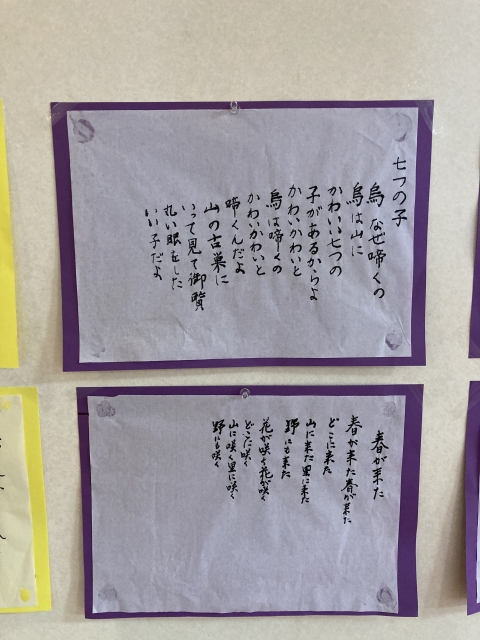 七つの子
烏 なぜ啼くの
烏は山に
かわいい七つの
子があるからよ
かわいかわいと
烏は啼くの
かわいかわいと
啼くんだよ
山の古巣に
いって見て御覧
丸い眼をした
いい子だよ
春が来た
春が来た春が来た
どこに来た
山に来た里に来た
野にも来た
花が咲く花が咲く
どこに咲く
山に咲く里に咲く
野にも咲く